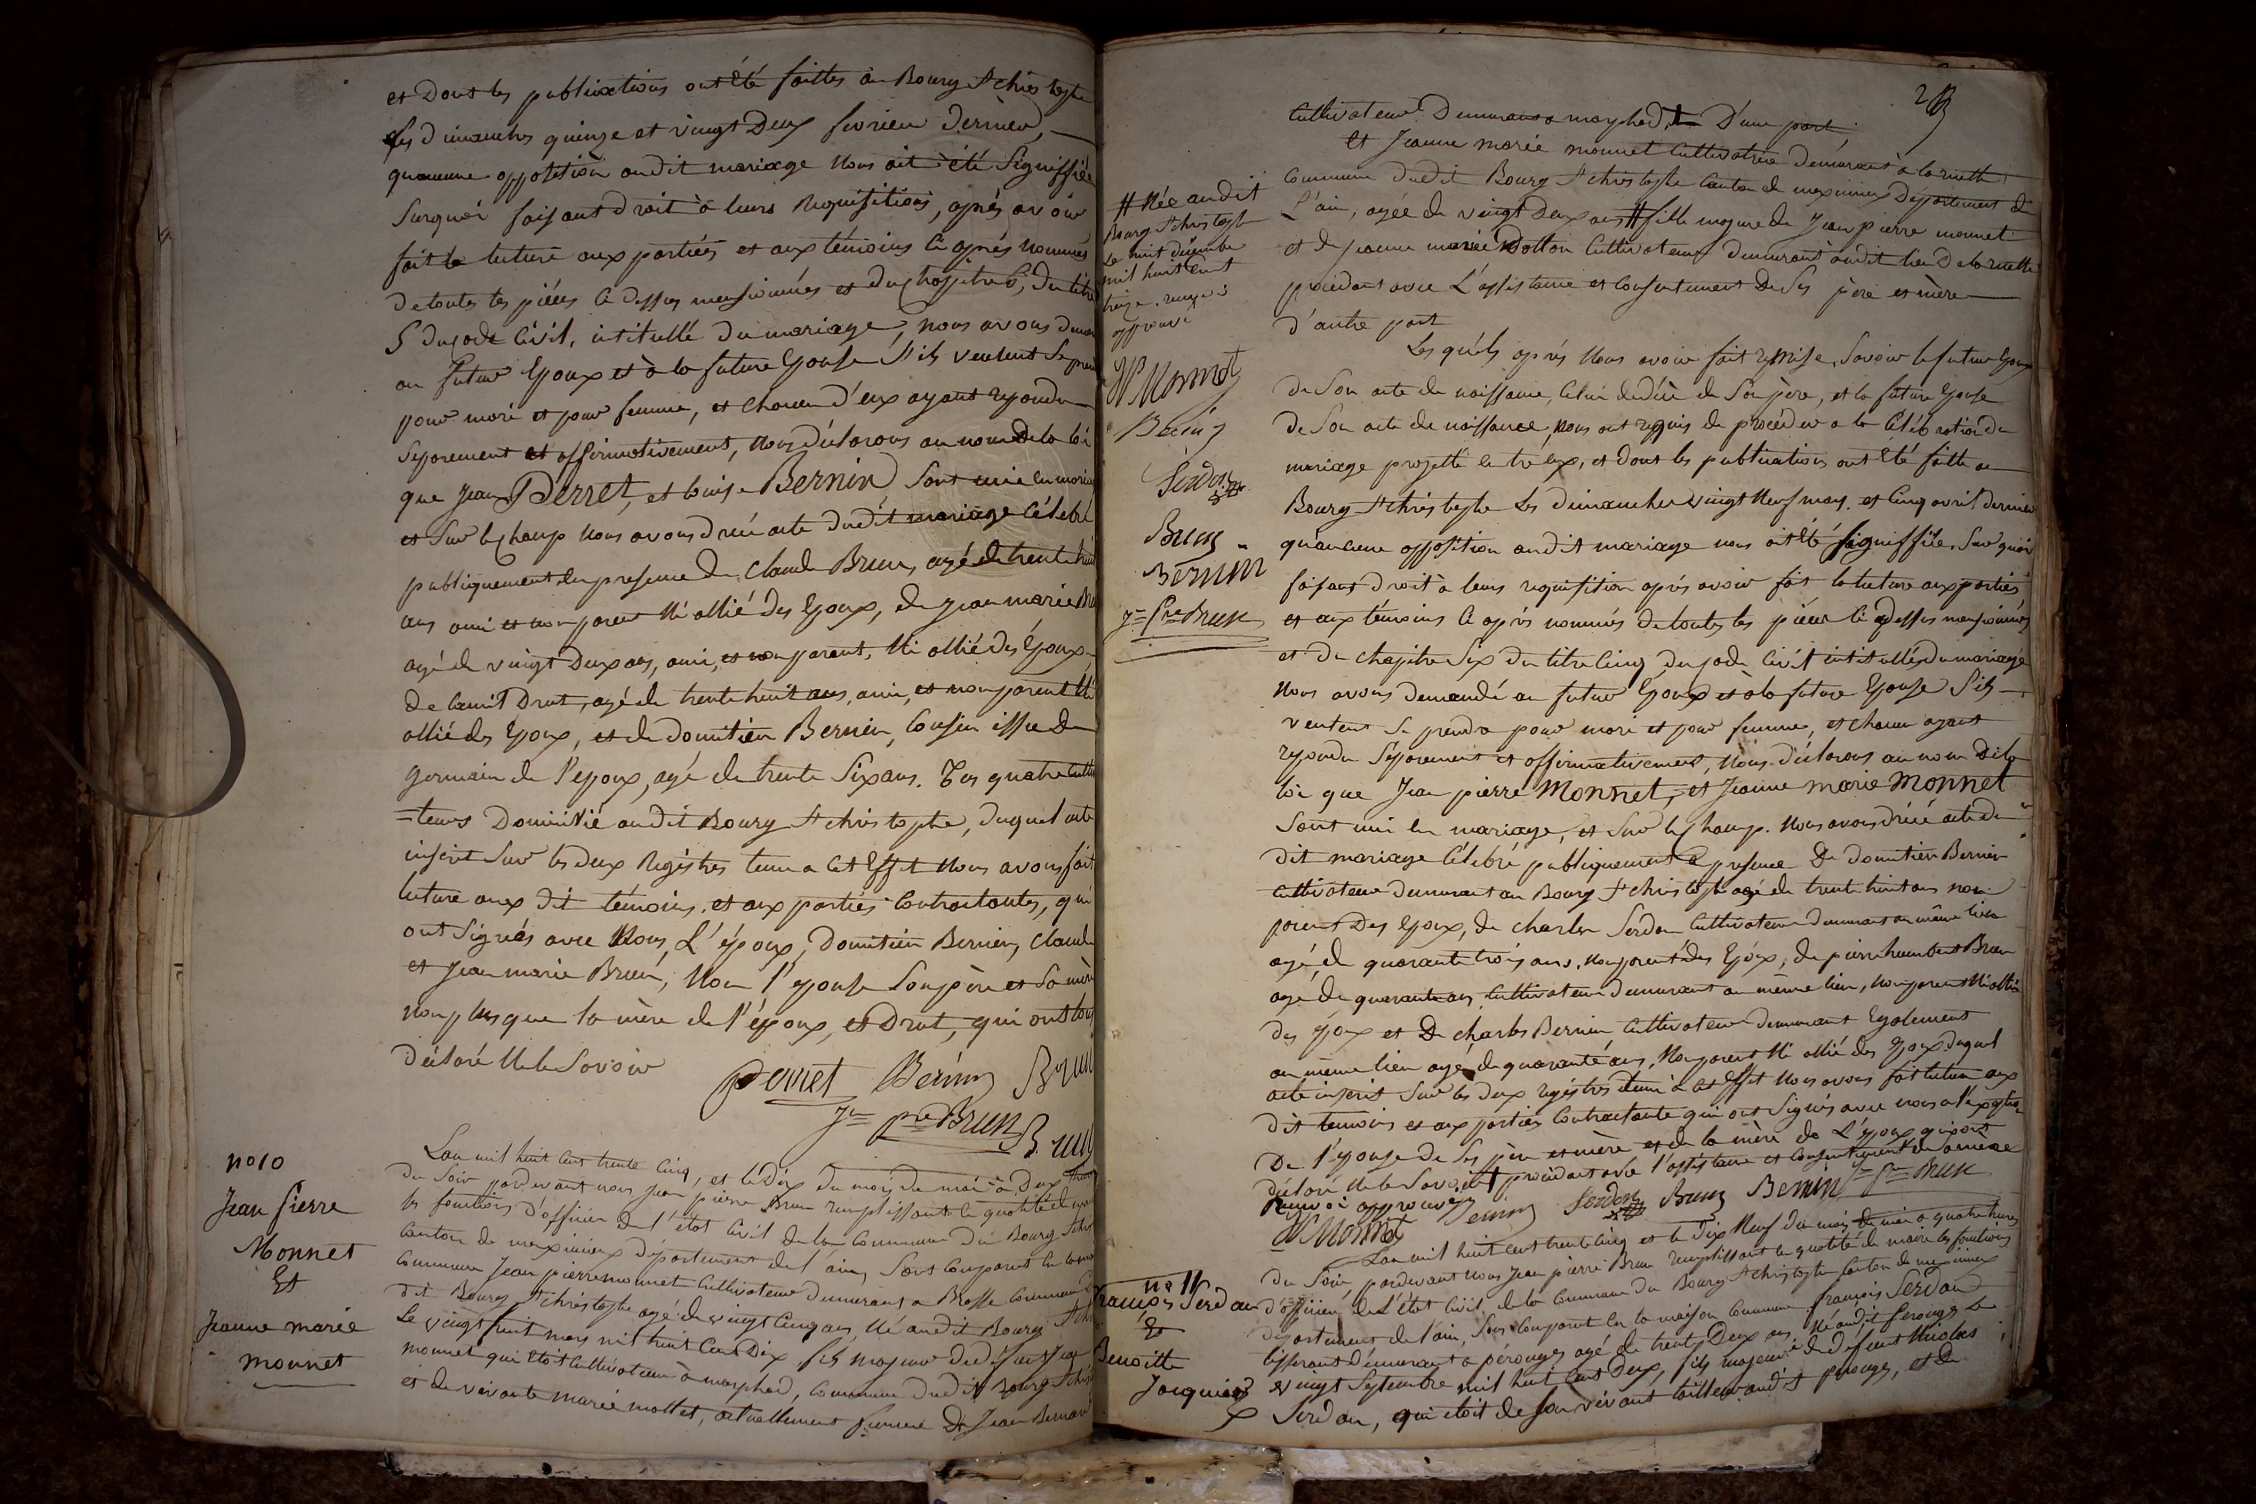 et dont les publications ont été faittes au Bourg St christophe
les dimanches quinze et vingt deux fevrier dernier,
qu'aucune opposition audit mariage nous ait été signiffiée
surquoi faisant droit à leurs requisitions, après avoir
fait la lecture aux parties et aux témoins ci après nommés
de toutes les pièces ci dessus mensionnées et du chapitre 6, du titre
5 du code Civil, intitullé du mariage, nous avons deman
au futur Epoux et à la future Epouse s'ils veulent se pren
pour mari et pour femme, et chacun d'eux ayant repondu
separement et affirmativement, nous déclarons au nom de la loi
que Jean Perret, et Louise Bernin sont uni en mariage
et sur le champ nous avons dréssé acte dudit mariage célébré
publiquement en presence de Claude Brun, agé de trente huit
ans ami et non parent Ni allié des Epoux, de Jean marie Bru
agé de vingt deux ans, ami, et non parent, Ni allié des Epoux
de Drut, agé de trente huit ans, ami, et non parent Ni
allié des Epoux, et de domitien Bernin, Cousin issu de
germain de l'epoux, agé de trente six ans. Tous quatre Cultiva
=teurs Domicilié audit Bourg St christophe, duquel acte
inscrit sur les deux Registres tenu a cet Effet Nous avons fait
lecture aux dit témoins, et aux parties Contractantes, qui
ont signés avec Nous, L'époux, Domitien Bernin, Claude
et Jean marie Brun, Non l'epouse son père et sa mère
non plus que la mère de l'époux, et Drut, qui ont tous
déclaré Ne le savoir
Perret Bernin Brun
Jn pre Brun B. Brun
no 10
Jean Pierre
Monnet
Et
Jeanne marie
monnet
L'an mil huit cent trente cinq, et le dix du mois de mai à deux heures
du soir pardevant nous Jean pierre Brun remplissant la qualité de maire
les fonctions d'officier de l'état Civil de la Commune du Bourg St chris
Canton de meximieux département de l'ain, Sont Comparus en la maison
Commune Jean pierre monnet Cultivateur demeurant a Commune du
dit Bourg St christophe agé de vingt cinq ans, Né audit Bourg St chris
le vingt huit mars mil huit Cent dix fils majeur de défunt Jean
monnet qui étoit Cultivateur à marphod, commune dudit Bourg St chris
et de vivante marie mollet, actuellement femme de Jean Bernard
28
Cultivateur Demeurant a marphod, D'une part
Et Jeanne marie monnet Cultivatrice demeurant à la ruette
Commune dudit Bourg St christophe Canton de meximieux Département de
L'ain, agée de vingt Deux ans # fille majeure de Jean pierre monnet
et de Jeanne marie Dotton Cultivateurs demeurant audit lieu de la ruette
procédant avec L'assistance et Consentement De Ses père et mère
d'autre part
# Née audit
Bourg St christophe
le huit décembre
mil huit cent
treize. renvoi
approuvé
JP Monnet
Bernin
Serdon
Brun
Bernin
Jn Pre Brun
Les quéls après Nous avoir fait remise, savoir le futur Epoux
de Son acte de naissance, Celui de décès de Son père, et la future Epouse
de Son acte de naissance, nous ont requis de procéder a la Célébration du
mariage projetté entre eux, et dont les publications ont été faitte au
Bourg St christophe Les dimanches vingt Neuf mars, et Cinq avril dernier
qu'aucune opposition audit mariage nous ait été signiffiée. Sur quoi
faisant droit a leurs requisition après avoir fait la lecture aux parties
et aux témoins Ci après nommés de toutes les pièces ci dessus mensionnées
et du chapitre Six du titre Cinq du code Civil intitullés du mariage
Nous avons demandé au futur Epoux et à la future Epouse s'ils
veulent se prendre pour mari et pour femme, et chacun ayant
repondu separement et affirmativement, Nous déclarons au nom de la
loi que Jean pierre Monnet, et Jeanne marie Monnet
sont uni en mariage, et sur le champ. Nous avons dréssé acte du
dit mariage Célébré publiquement en presence de domitien Bernin
Cultivateur demeurant au Bourg St christophe agé de trente huit ans non
parent Des Epoux, de charles Serdon Cultivateur demeurant au même lieu
agé de quarante trois ans, Non parent des Epoux, de pierre humbert Brun
agé de quarante ans Cultivateur demeurant au même lieu, Non parent Ni allié
des Epoux et De charles Bernin, Cultivateur demeurant Egalement
au même lieu agé de quarante ans, Non parent Ni allié des Epoux duquel
acte inscrit sur les deux registres tenu à cet Effet Nous avons fait lecture aux
dit temoins et aux parties Contractante qui ont signés avec nous a l'exception
De l'epouse de ses père et mère et de la mère de L'epoux qui ont
déclaré Ne le Savoir # procédant avec l'assistance et Consentement de Sa mère
Renvoi approuvé Bernin Serdon Brun Bernin Jn Pre Brun
JP Monnet
no 11
François Serdon
Et
Benoitte
Jacquier
L'an mil huit cent trente cinq et le dix Neuf du mois de mai a quatre heures
du soir, pardevant nous Jean pierre Brun remplissant la qualité de maire les fonctions
d'officier de L'état Civil de la Commune du Bourg St christophe Canton de meximieux
département de l'ain, sont Comparus en la maison Commune françois Serdon
tisserant Demeurant a pérouges agé de trente Deux ans, Né audit Perouges Le
vingt septembre mil huit Cent deux, fils majeur de defunt Nicolas
Serdon, qui étoit de son vivant tailleur audit perouges, et de